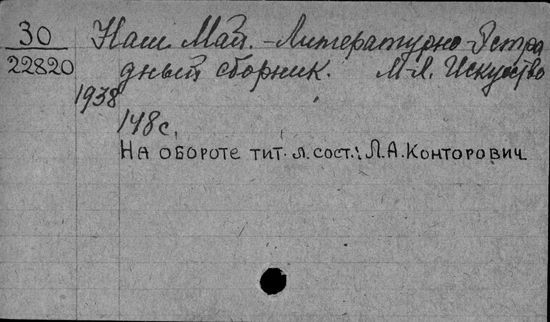 30
22820
Наш Май. - Литературно-Эстра
дный сборник. М-Л. Искусство
1938
148с.
НА ОБОРОТЕ ТИТ. Л. СОСТ.: Л.А. КОНТОРОВИЧ